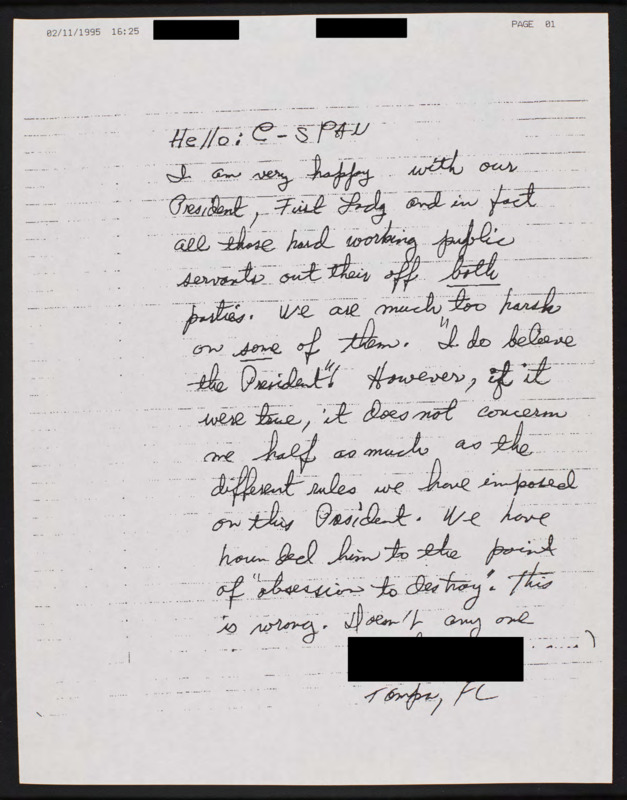 02/11/1995 16:25 PAGE 01
Hello: C-SPAN
I am very happy with our
President, First Lady and in fact
all those hard working public
servants out their off both
parties. We are much too harsh
on some of them. "I do beleeve
the President"! However, if it
were true, it does not concern
me half as much as the
different rules we have imposed
on this President. We have
hounded him to the point
of "obsession to destroy". This
is wrong. Doesn't any one
Tampa, FL